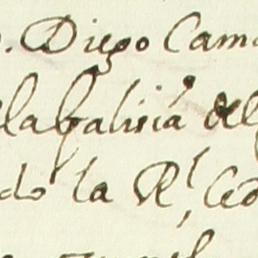 . Diego Cama
la falisia del
do la Rl, Ceo